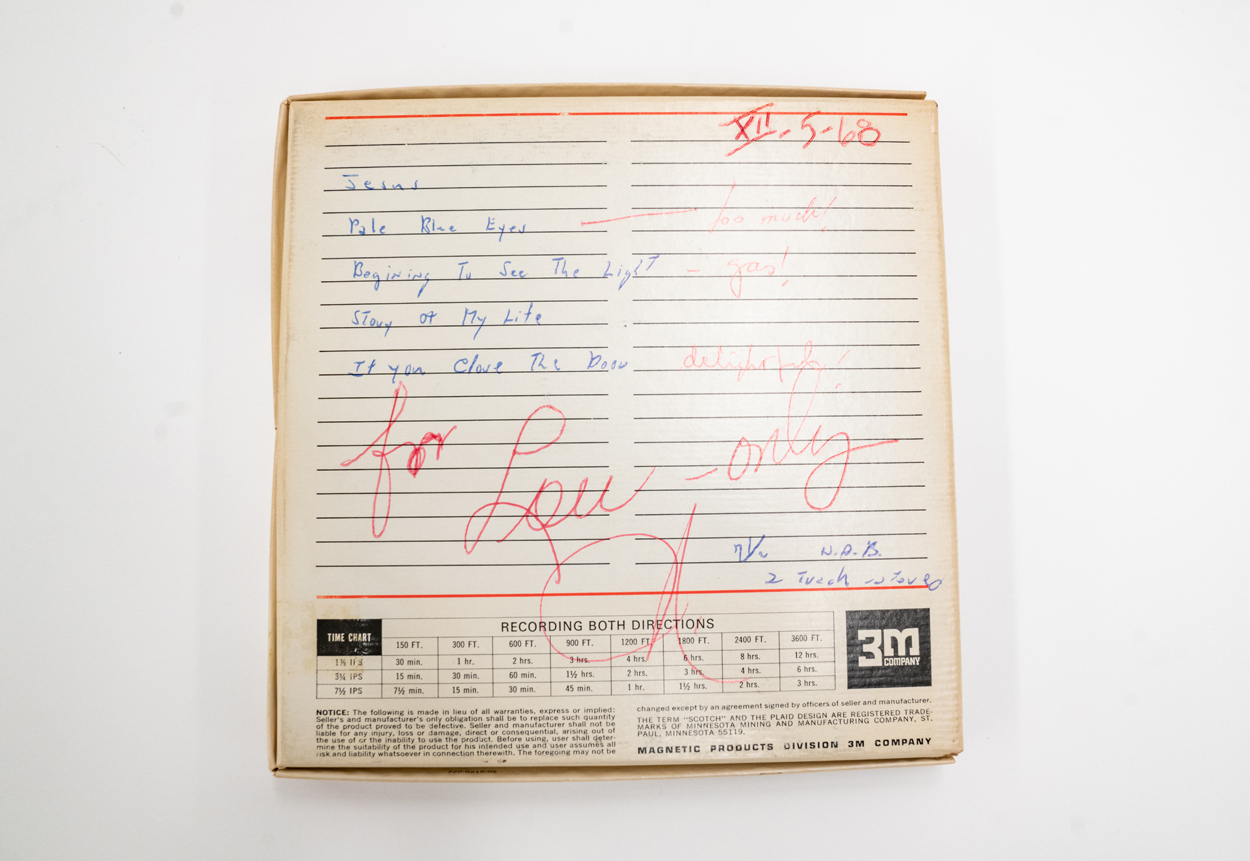 XII-5-68
Jesus
Pale Blue Eyes — too much!
Begining To See The Light - gas!
Story of My Life
If you Close The Door delightful!
for Lou - only
7 1/2 N.A.B.
2 Track stereo
TIME CHART
RECORDING BOTH DIRECTIONS
150 FT. 300 FT. 600 FT. 900 FT. 1200 FT. 1800 FT. 2400 FT. 3600 FT.
1⅞ IPS 30 min. 1 hr. 2 hrs. 3 hrs. 4 hrs. 6 hrs. 8 hrs. 12 hrs.
3¾ IPS 15 min. 30 min. 60 min. 1½ hrs. 2 hrs. 3 hrs. 4 hrs. 6 hrs.
7½ IPS 7½ min. 15 min. 30 min. 45 min. 1 hr. 1½ hrs. 2 hrs. 3 hrs.
3M
COMPANY
NOTICE: The following is made in lieu of all warranties, express or implied:
Seller's and manufacturer's only obligation shall be to replace such quantity
of the product proved to be defective. Seller and manufacturer shall not be
liable for any injury, loss or damage, direct or consequential, arising out of
the use of or the inability to use the product. Before using, user shall deter-
mine the suitability of the product for his intended use and user assumes all
risk and liability whatsoever in connection therewith. The foregoing may not be
changed except by an agreement signed by officers of seller and manufacturer.
THE TERM "SCOTCH" AND THE PLAID DESIGN ARE REGISTERED TRADE-
MARKS OF MINNESOTA MINING AND MANUFACTURING COMPANY, ST.
PAUL, MINNESOTA 55119.
MAGNETIC PRODUCTS DIVISION 3M COMPANY